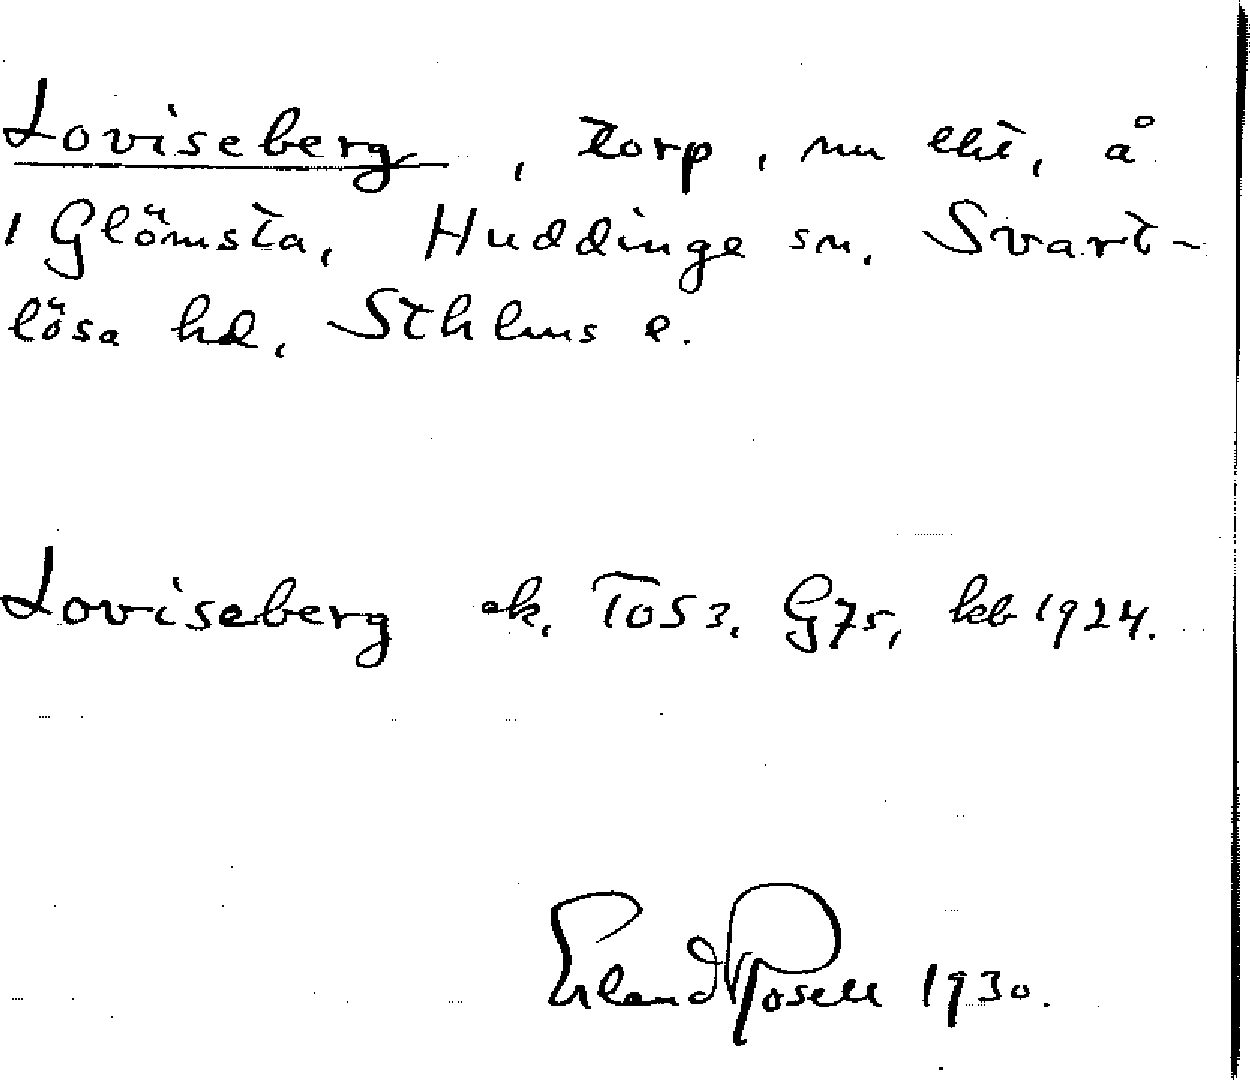 Loviseberg, torp, nu eht, å
1 Glömsta, Huddinge sn, Svart-
lösa hd, Sthlms l.
Loviseberg ek. To53. G75, kb 1924.
Erland Rosell 1930.